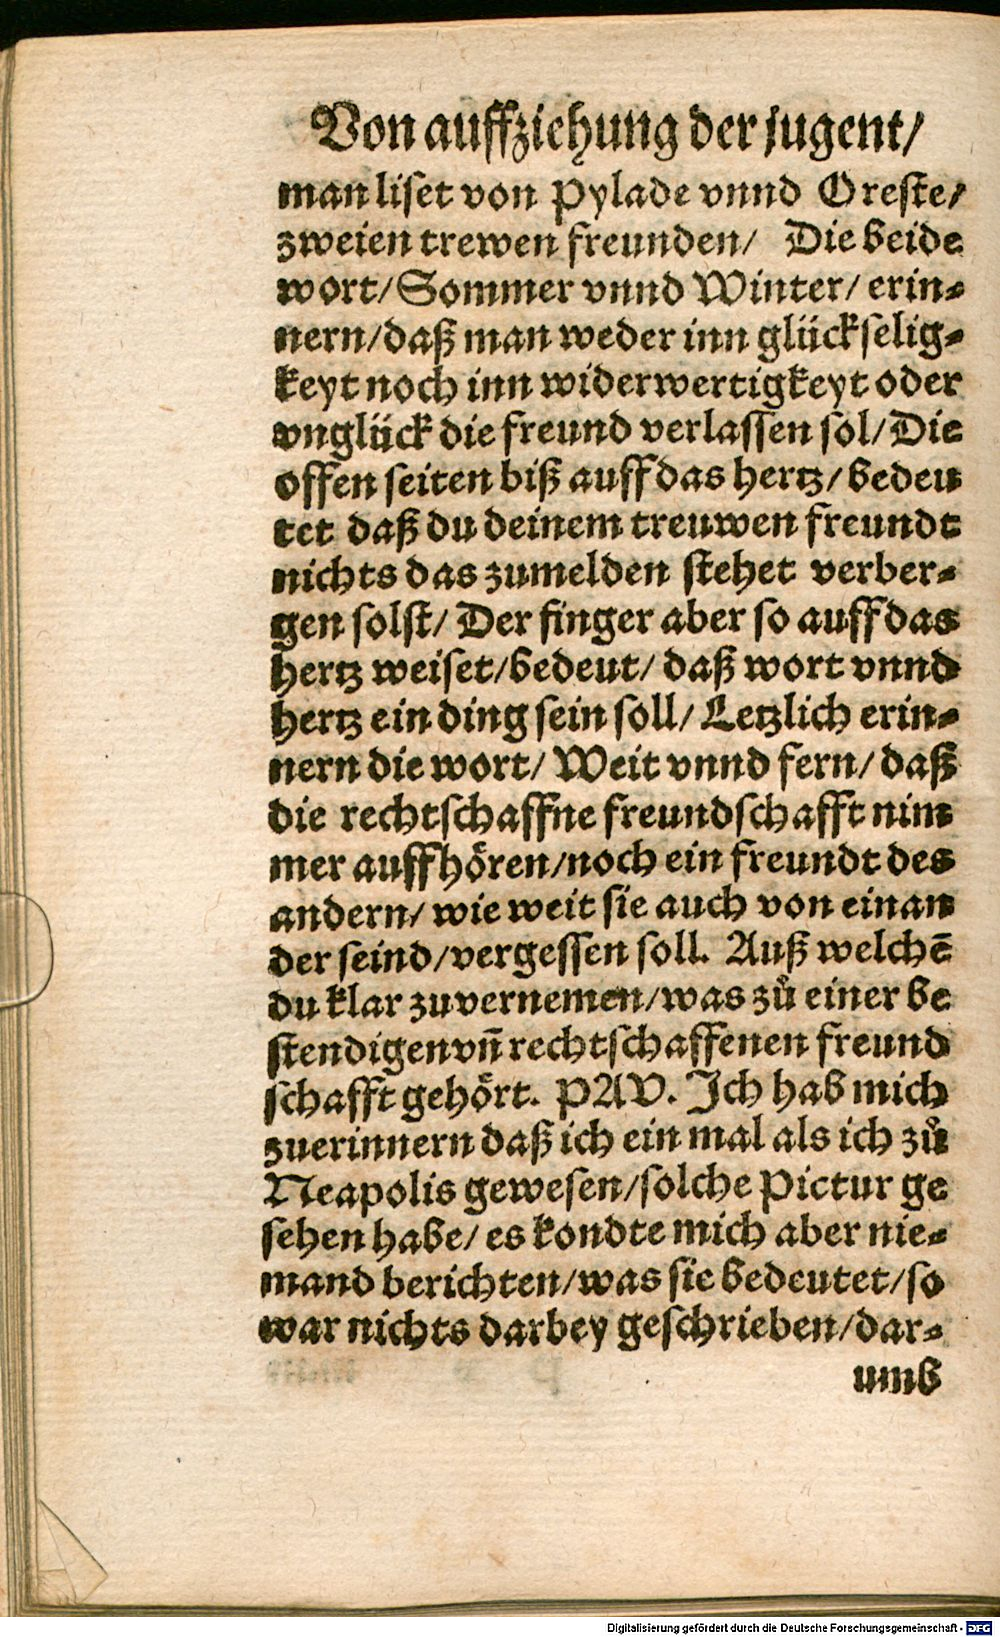 Von auffziehung der jugent/
man liset von Pylade vnnd Oreste/
zweien trewen freunden/ Die beide
wort/ Sommer vnnd Winter/ erin-
nern/ daß man weder inn glückselig-
keyt noch inn widerwertigkeyt oder
vnglück die freund verlassen sol/ Die
offen seiten biß auff das hertz/ bedeu
tet daß du deinem treuwen freundt
nichts das zumelden stehet verber-
gen solst/ Der finger aber so auff das
hertz weiset/ bedeut/ daß wort vnnd
hertz ein ding sein soll/ Letzlich erin-
nern die wort/ Weit vnnd fern/ daß
die rechtschaffne freundschafft nim
mer auffhören/ noch ein freundt des
andern/ wie weit sie auch von einan
der seind/ vergessen soll. Auß welchē
du klar zuvernemen/ was zů einer be
stendigen vn̄ rechtschaffenen freund
schafft gehört. PAV. Ich hab mich
zuerinnern daß ich ein mal als ich zů
Neapolis gewesen/ solche Pictur ge
sehen habe/ es kondte mich aber nie-
mand berichten/ was sie bedeutet/ so
war nichts darbey geschrieben/ dar-
umb
Digitalisierung gefördert durch die Deutsche Forschungsgemeinschaft - DFG